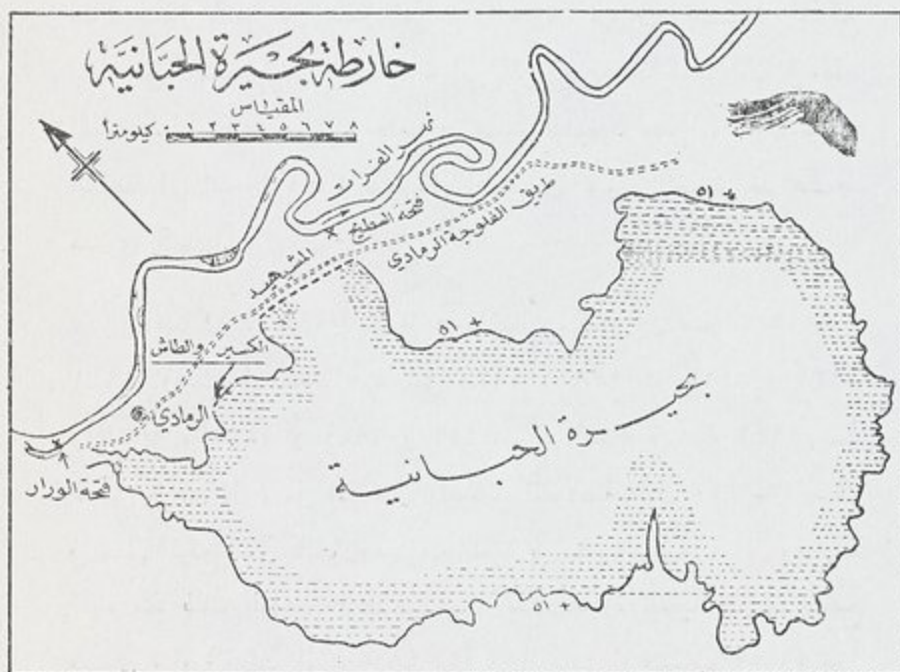 خارطة بحيرة الحبانية
المقياس
٠ ١ ٢ ٣ ٤ ٥ ٦ ٧ ٨ كيلومترا
نهر الفرات
فتحة السطيح
طريق الفلوجة الرمادي
المشيهد
والطاش
الرمادي
فتحة الورار
بحيرة الحبانية
+ ٥١
+ ٥١
+ ٥١